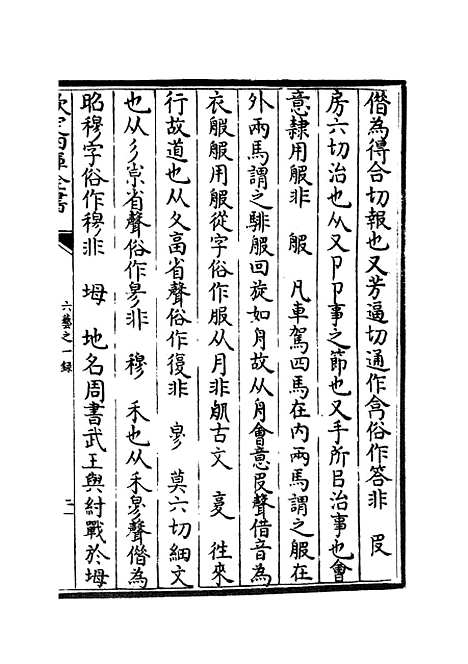 僭為得合切報也又芳逼切通作畣俗作答非　𠬝
房六切治也从又卪卪事之節也又手所㠯治事也會
意隷用服非　服　凡車駕四馬在内兩馬謂之服在
外兩馬謂之騑服回旋如舟故从舟會意𠬝聲借音為
衣服服用服從字俗作服从月非𦨕古文　夏　往來
行故道也从夂畗省聲俗作復非　㣎　莫六切細文
也从彡𡭴省聲俗作㣎非　穆　禾也从禾㣎聲僭為
昭穆字俗作穆非　坶　地名周書武王與紂戰於坶
欽定四庫全書
六藝之一錄